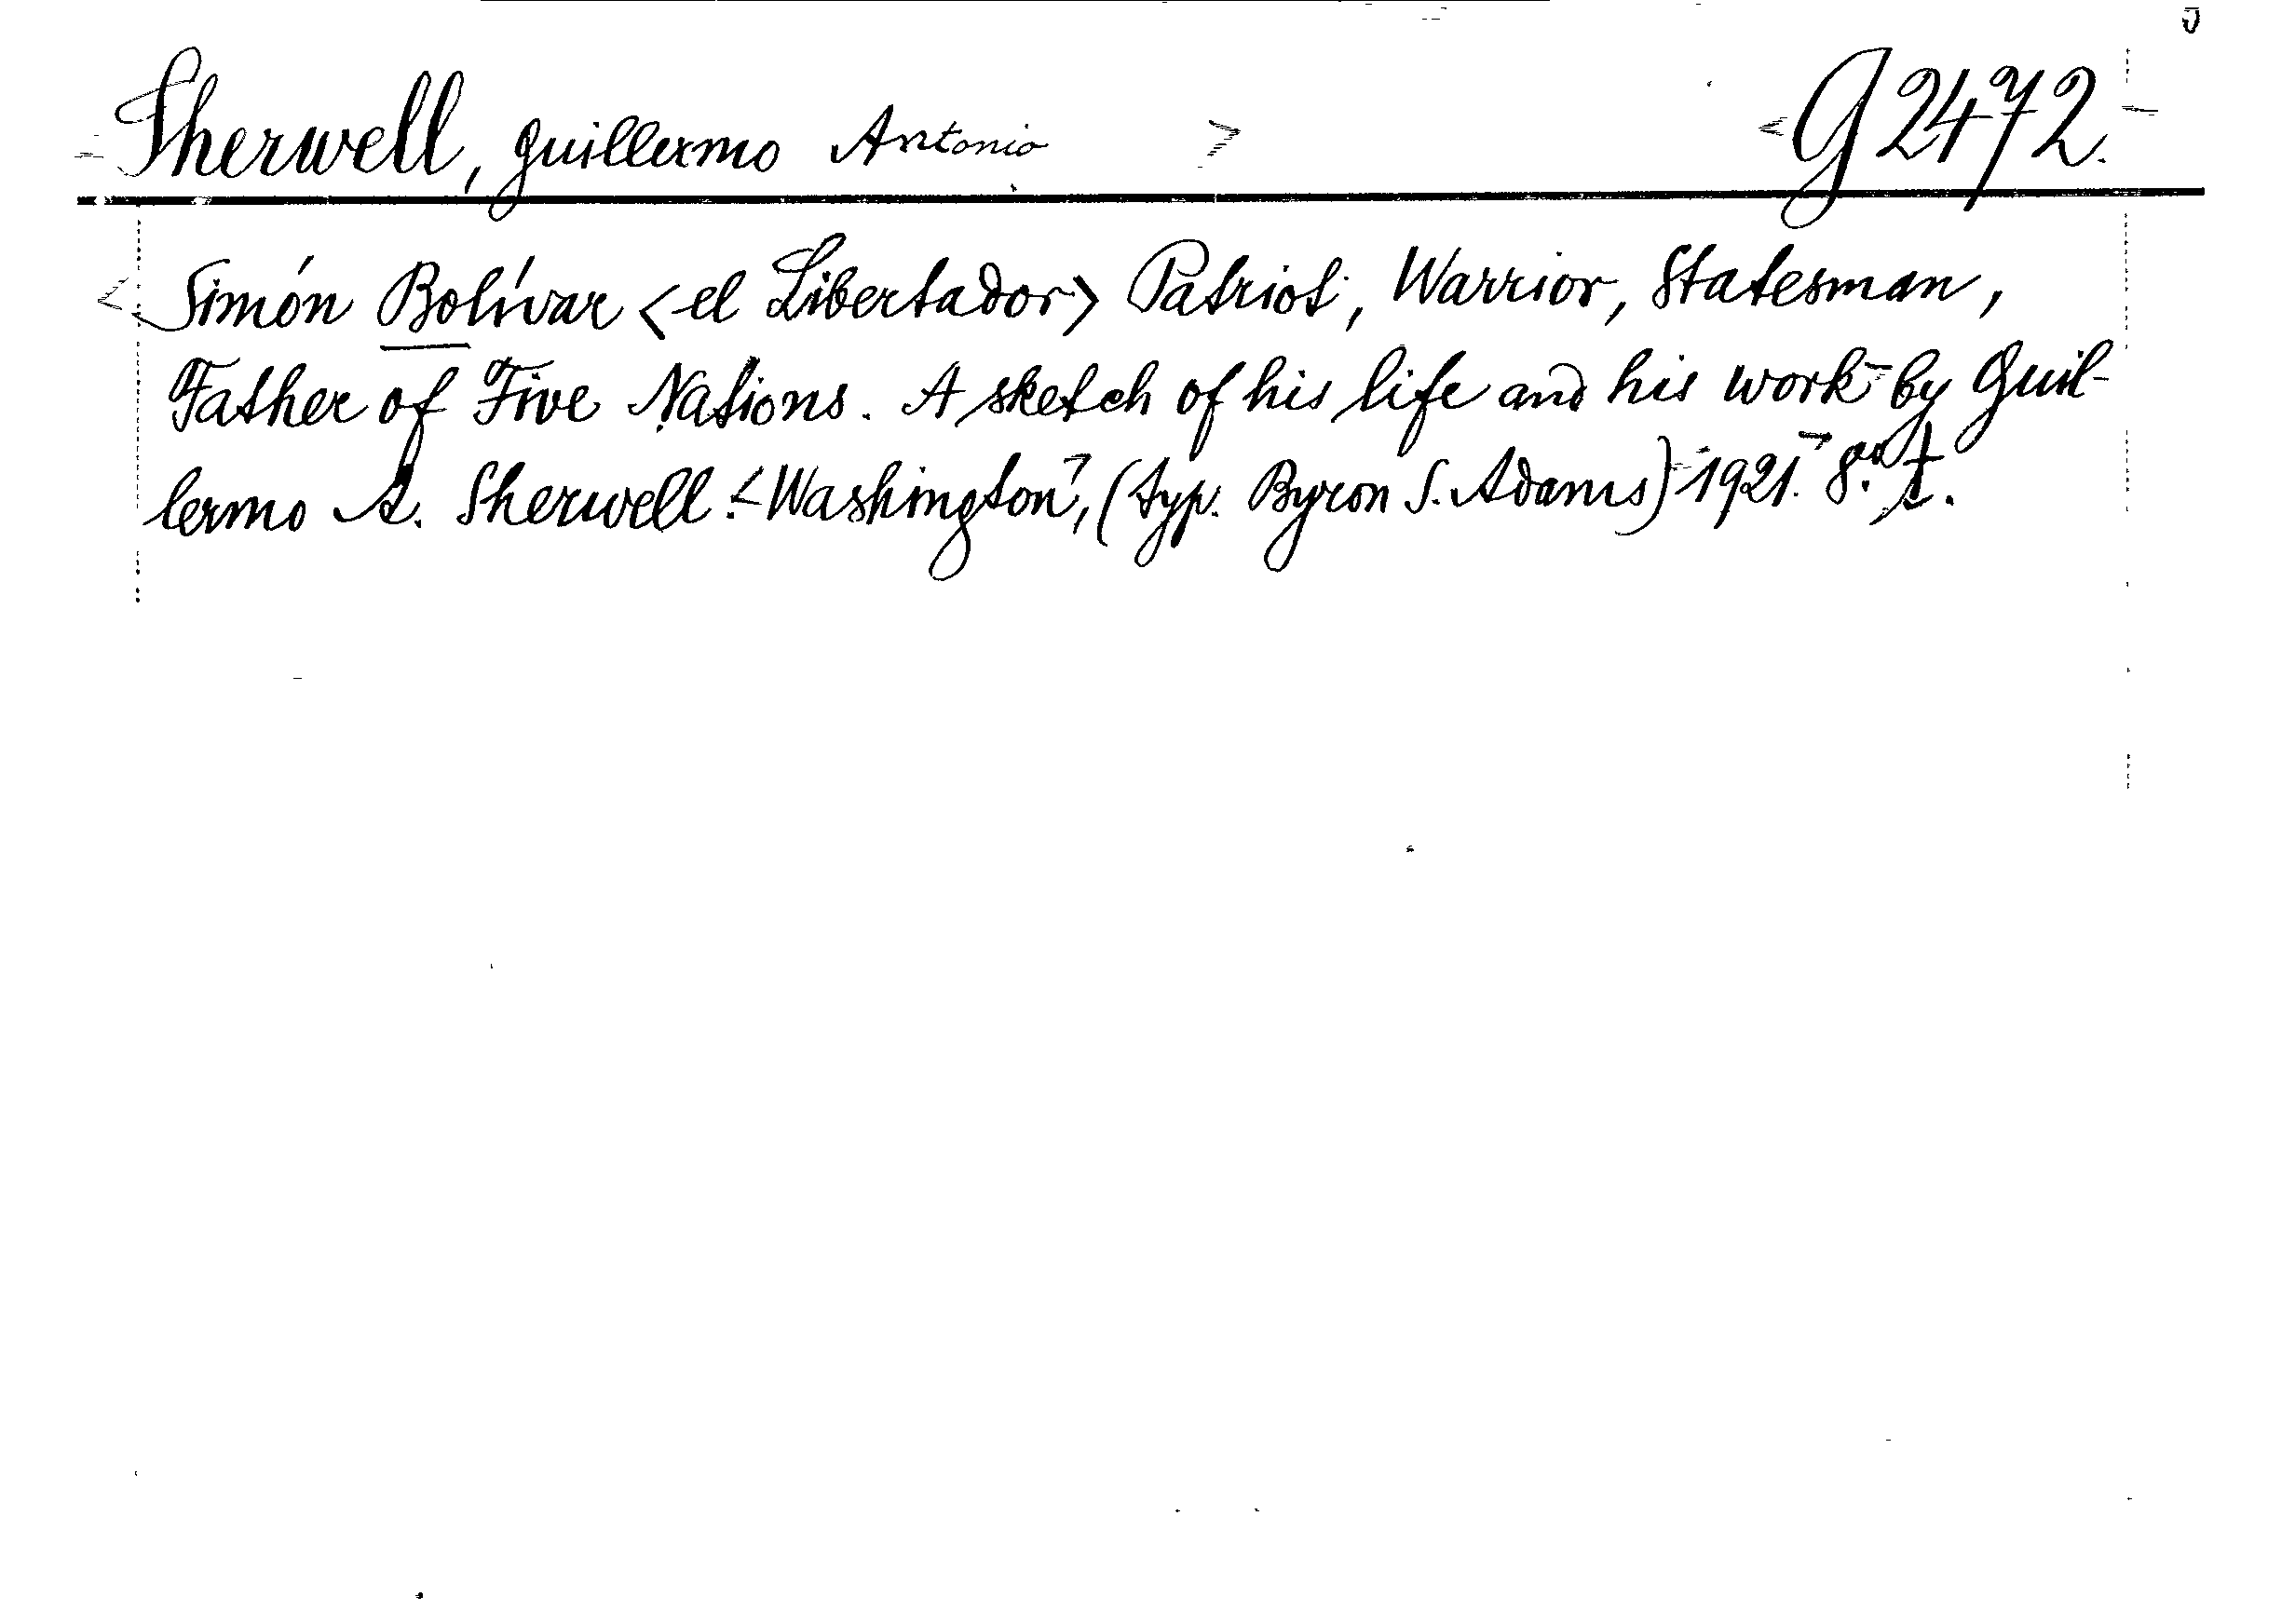 Sherwell, Guillermo Antonio G 2472.
Simón Bolívar <el Libertador> Patriot, Warrior, Statesman,
Father of Five Nations. A sketch of his life and his work by Guil-
lermo A. Sherwell. Washington, (typ. Byron S. Adams) 1921. 8.º